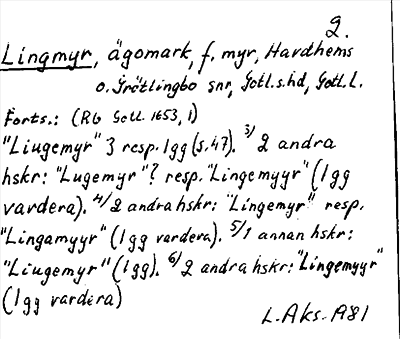 2.
Lingmyr, ägomark, f. myr, Hardhems
o. Grötlingbo snr, Gotl.s.hd, Gotl.l.
Forts.: (Rb Gotl. 1653, 1)
"Liugemyr" 3 resp. 1gg (s.47). 3/ 2 andra
hskr: "Lugemyr"? resp. "Lingemyyr" (1gg
vardera). 4/ 2 andra hskr: "Lingemyr" resp.
"Lingamyyr" (1gg vardera). 5/ 1 annan hskr:
"Liugemyr" (1gg). 6/ 2 andra hskr: "Lingemyyr"
(1gg vardera)
L.Aks. A81